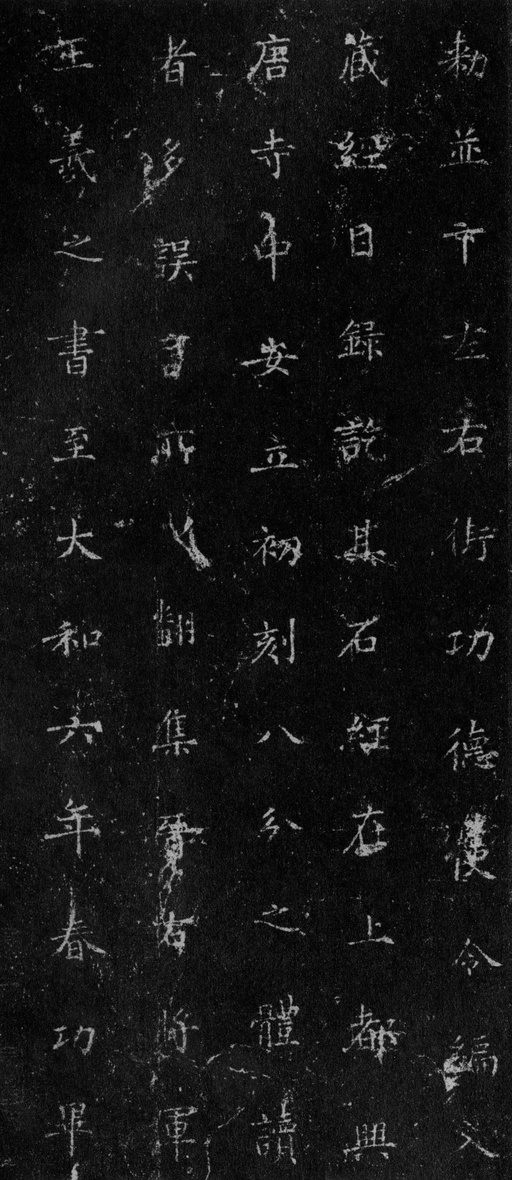 勑並左右街功德使令編入
藏經目録訖其石經在上都興
唐寺中安立初刻八分之體讀
者多誤所以翻集晉右將軍
王羲之書至大和六年春功畢